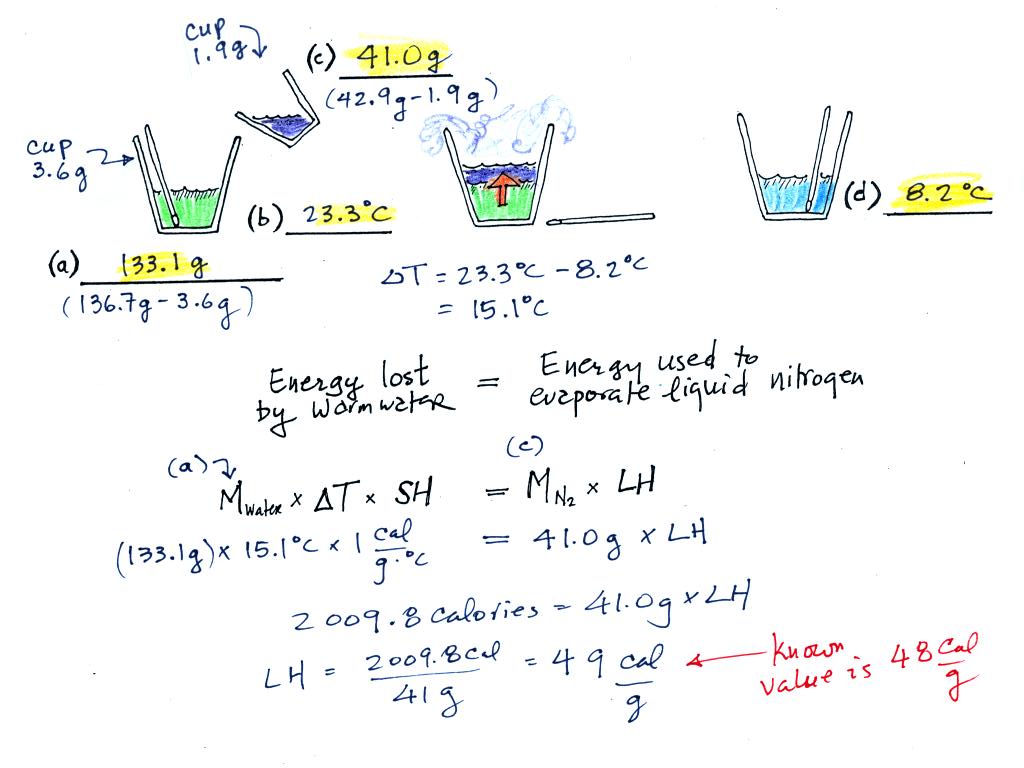 cup
1.9g
(c) 41.0g
(42.9g-1.9g)
cup
3.6g
(b) 23.3°C
(d) 8.2°C
(a) 133.1g
(136.7g-3.6g)
ΔT = 23.3°C - 8.2°C
= 15.1°C
Energy lost by warm water = Energy used to evaporate liquid nitrogen
(a) (c)
M water × ΔT × SH = M N2 × LH
(133.1g) × 15.1°C × 1 cal/g·°C = 41.0g × LH
2009.8 calories = 41.0g × LH
LH = 2009.8 cal/41g = 49 cal/g ← known value is 48 cal/g